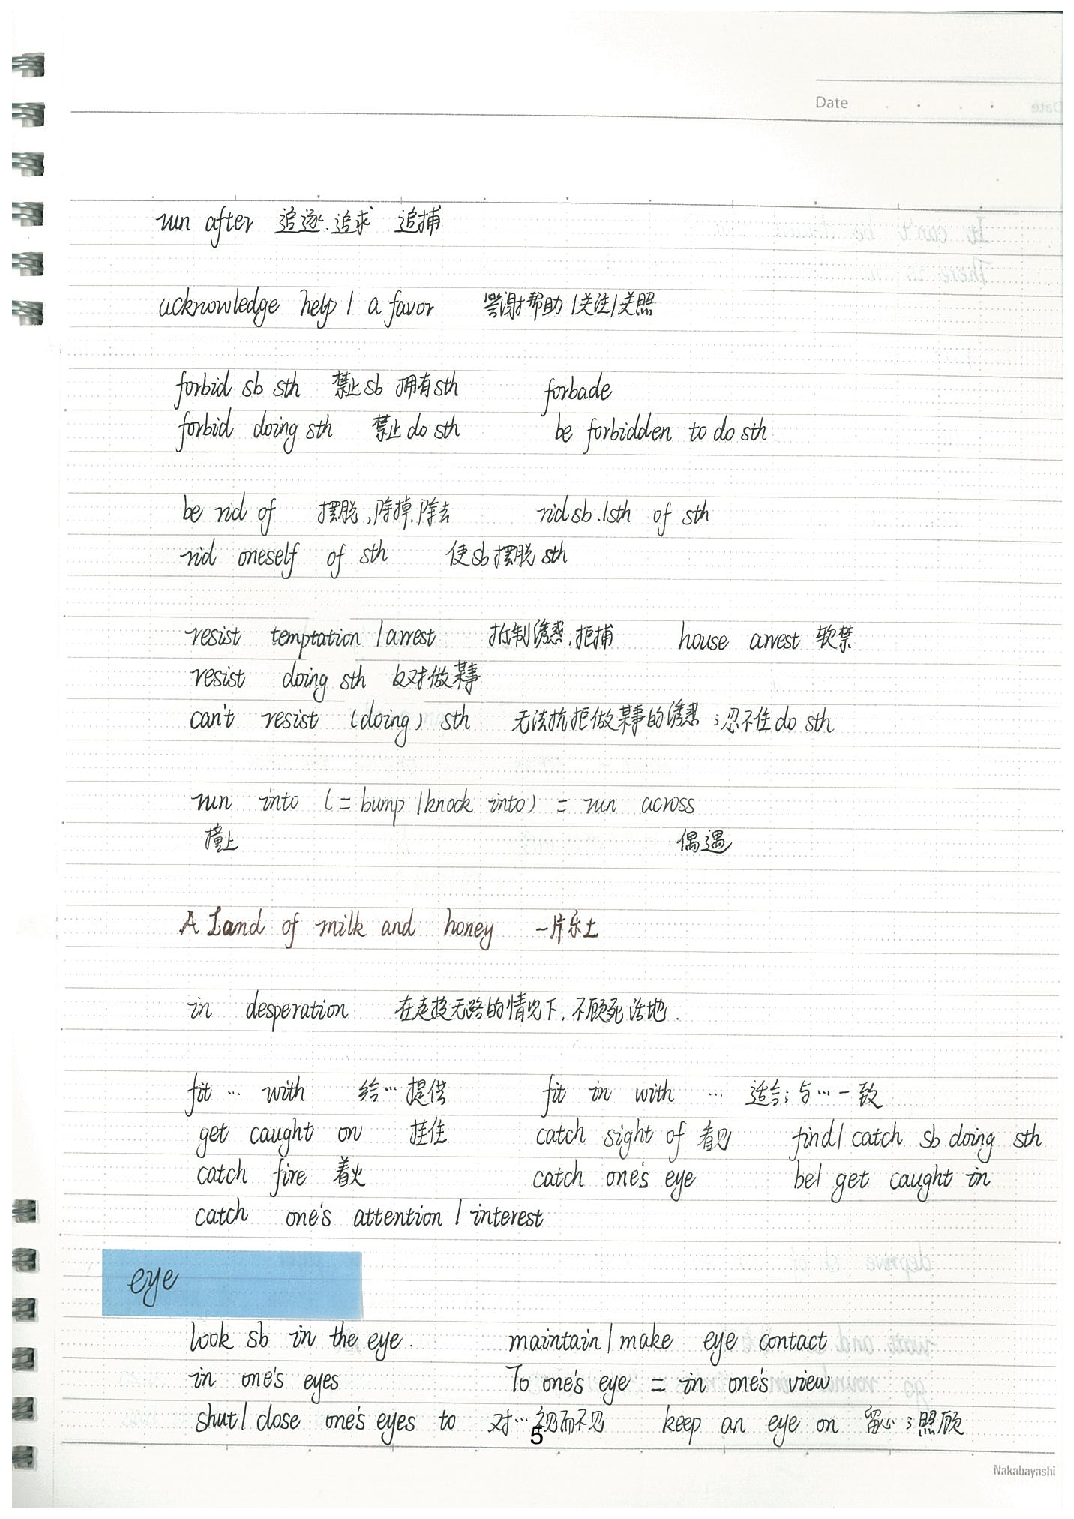 Date
run after 追逐.追求 追捕
acknowledge help / a favor 答谢帮助/关注/关照
forbid sb sth 禁止sb 拥有sth forbade
forbid doing sth 禁止do sth be forbidden to do sth
be rid of 摆脱,除掉.除去 rid sb./sth of sth
rid oneself of sth 使sb摆脱sth
resist temptation / arrest 抵制诱惑.拒捕 house arrest 软禁
resist doing sth 反对做某事
can't resist (doing) sth 无法抗拒做某事的诱惑;忍不住do sth
run into (= bump / knock into) = run across
撞上 偶遇
A Land of milk and honey 一片乐土
in desperation 在走投无路的情况下.不顾死活地.
fit … with 给…提供 fit in with … 适合;与…一致
get caught on 挂住 catch sight of 看见 find/ catch sb doing sth
catch fire 着火 catch one's eye be/ get caught in
catch one's attention / interest
eye
look sb in the eye. maintain / make eye contact
in one's eyes To one's eye = in one's view
shut/ close one's eyes to 对…视而不见 keep an eye on 留心;照顾
5
Nakabayashi